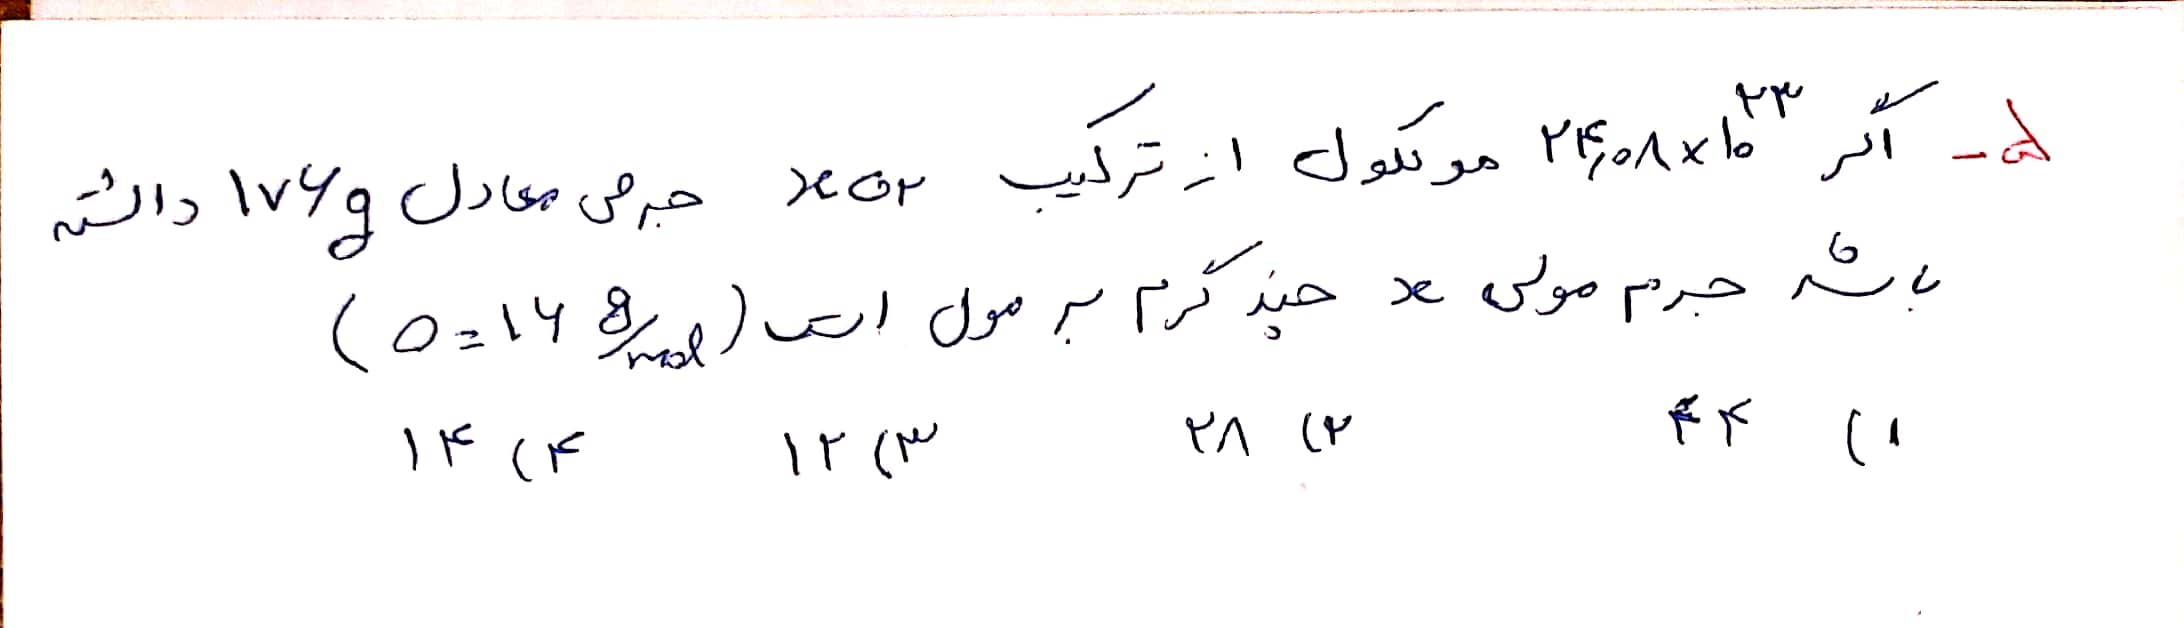 ۵- اگر ۲۴٫۰۸×۱۰^۲۳ مولکول از ترکیب xO۲ جرمی معادل ۱۷۶g داشته
باشد جرم مولی x چند گرم بر مول است (O=۱۶ g/mol)
۱) ۴۴ ۲) ۲۸ ۳) ۱۲ ۴) ۱۴